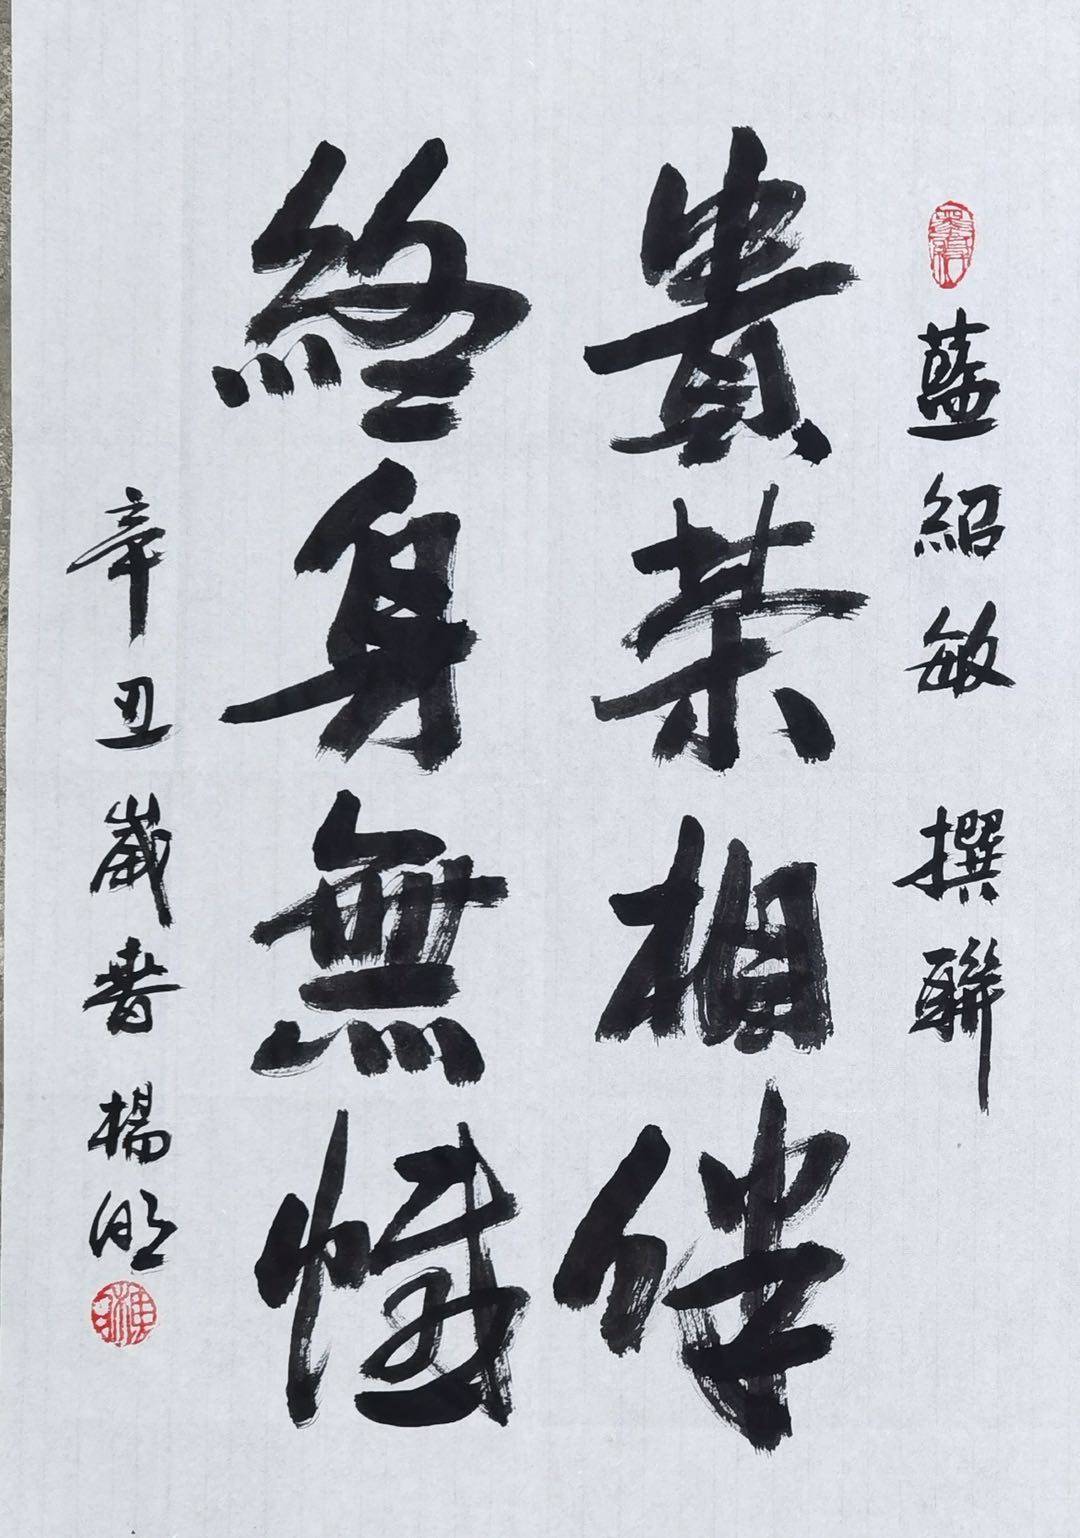 藍紹敏 撰聯
貴榮相伴
終身無憾
辛丑歲書楊明